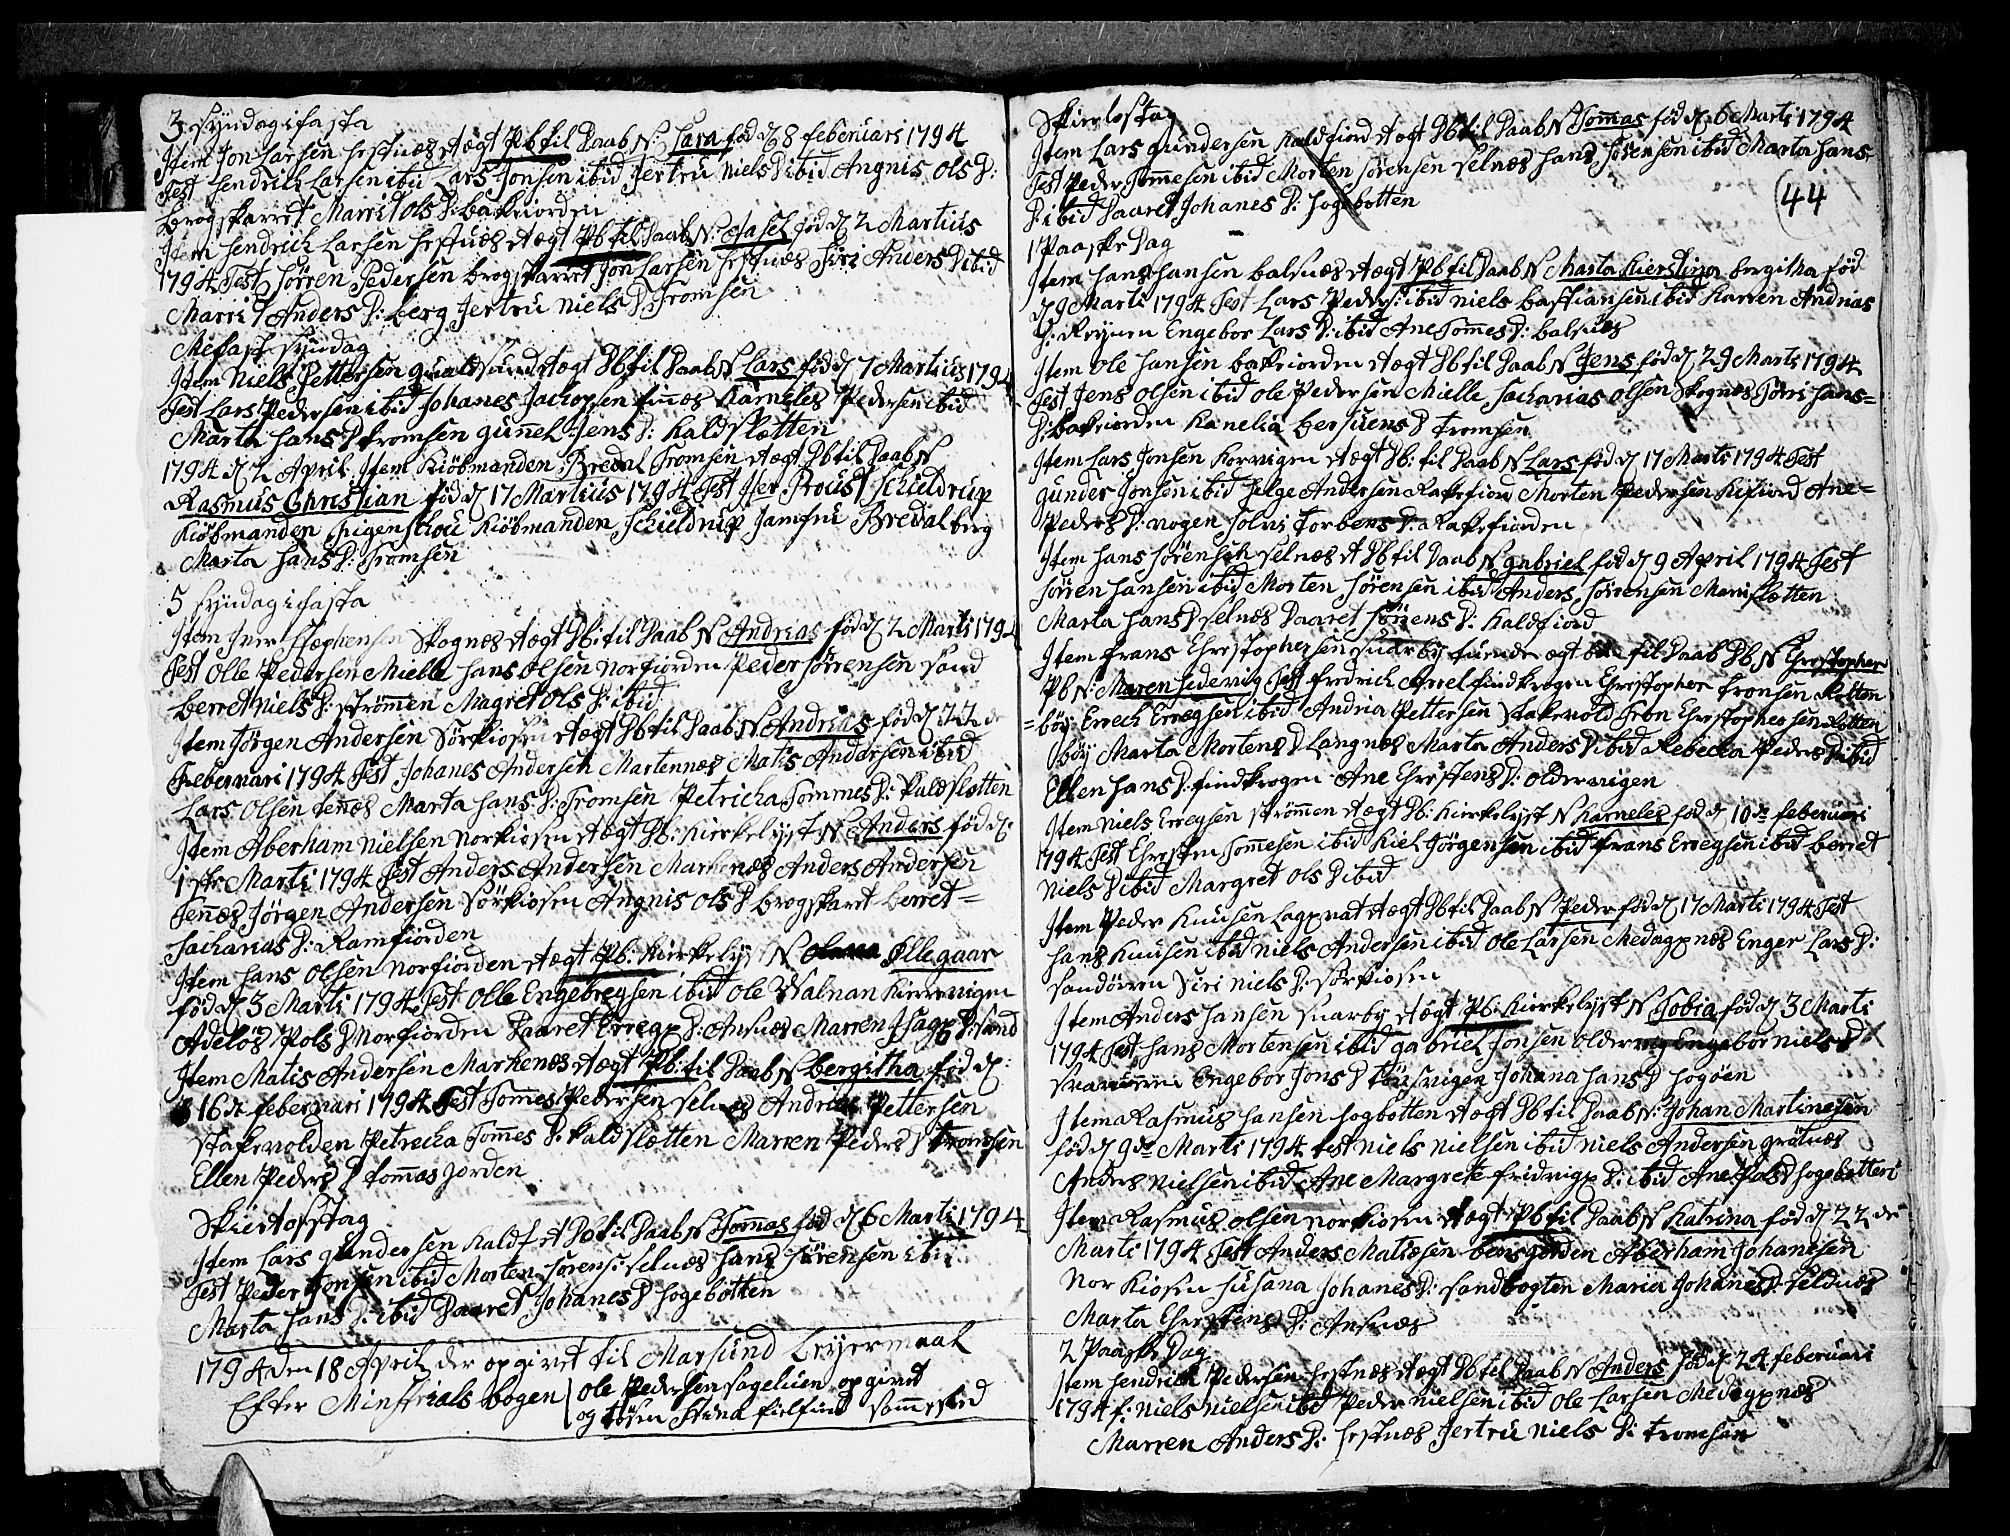 3 Syndag i fasta
Item Jon Larsen hestnæs Aegt Pb til Daab N: Sara fød d 8 feberuari 1794
Test hendrich Larsen ibid Lars Jonsen ibid Jertru Niels D ibid Angnis Ols D:
Brogskarret Marrit Ols D: bakfiorden
Item hendrich Larsen hestnæs Aegt Pb til Daab N: Aasel fød d 2 Martius
1794 Test Sørren Pedersen brogskarret Jon Larsen hestnæs Siri Anders D ibid
Marrit Anders D: berg Jertru Niels D Tromsen
Mefast Syndag
Item Niels Pettersen qualdsund Aegt Db til Daab N Lars fød d 7 Martius 1794
Test Lars Pedersen ibid Johanes Jachopsen finæs Karneles Pedersen ibid
Marta hans D tromsen gunnel Jens D: Kaldsletten
1794 d 2 April Item Kiöbmanden: Bredal Tromsen Aegt Db til Daab N
Rasmus Christian fød d 17 Martius 1794 Test Her Proust Schieldrup
Kiöbmanden Kiöbmanden Schieldrup Jamfru Bredal berg
Marta hans D: Tromsen
5 Syndag i fasta
Item Iver Stephensen Skognæs Aegt Db: til Daab N Andreas fød d 2 Marti 1794
Test Olle Pedersen Mielle hans Olsen Norfiorden Peder Sørrensen Sand
berret Niels D: Strømmen Magret Ols D: ibid
Item Jørgen Andersen Sörkiosen Aegt Db til Daab N Andreas fød d 22 de
Febernari 1794 Test Johanes Andersen Martennæs Matis Andersen ibid
Lars Olsen tennæs Marta hans D: Tromsen Petricka Tommes D: Kaldsletten
Item Aberham Nielsen Norkiosen Aegt Db: Kierkelyst N Anders fød d:
1ste Marti 1794 Test Anders Andersen Markenæs Anders Andersen
Tennæs Jørgen Andersen Sörkiosen Angnis Ols D brogskaret berret=
Sacharias D: Ramfiorden
Item hans Olsen Norfiorden Aegt Pb: Kierkelyst N Ellegaar
fød d 3 Marti 1794 Test Olle Engebregsen ibid Ole Walnan Kiervigen
Adelös Pols D Norfiorden Daaret Erregs D: Ansnæs Marren Isags D: Sand
Item Matis Andersen Markenæs Aegt Pb: til Daab N bergitha fød d:
16de febernari 1794 Test Tomes Pedersen Selnes Andrias Pettersen
Stakevolden Petrecka Tommes D: Kaldsletten Marren Peders D tromsen
Ellen Peders D tommasjorden
Skiertosstag
Item Lars gundersen Kaldf A Db til Daab N Tommas fød d 6 Marti 1794
Test Peder Tomsen ibid Morten Sørens: Selnæs hans Sørensen ibid
Marta hans D: ibid Daaret Johanes D hogebotten
1794 den 18 April der opgivet til Marsund Leyermaal
Efter Ministrials bogen Ole Pedersen opgivet
og tøsen Stina fielfind sammested
Skierlostag
44
Item Lars gundersen Kaldfiord Aegt Db til Daab N Tommas fød d 6 Marti 1794
Test Peder Tommesen ibid Morten Sørensen Selnæs hans Sørensen ibid Marta hans
D: ibid Daaret Johanes D: hogebotten
1 Paaske Dag
Item hans hansen balsnæs Aegt Pb til Daab N Marta Kierstina bergitha fød
d 9 Marti 1794 Test Lars Peders: ibid Niels bastiansen ibid Karren Andrias
D: Engebor Lars D: ibid Ane Tomes D: balsnæs
Item Ole hansen bakfiorden Aegt Db til Daab N Jens fød d 29 Marti 1794
Test Jens Olsen ibid Ole Pedersen Mielle Sacharias Olsen Skognæs Siri hans=
D: bakfiorden Kanelia bersvens D tromsen
Item Lars Jonsen Korvigen Aegt Db: til Daab N Lars fød d 17 Marti 1794 Test
gunder Jonsen ibid helge Andersen Rakefiord Morten Pedersen Kifiord Ane=
Peders D: vogen Solvi torbens D: Rakefiorden
Item hans Sørensen Selnæs A Db til Daab N gabriel fød d 9 April 1794 Test
Sørren hansen ibid Morten Sørensen ibid Anders Sørrensen Marisletten
Marta hans D Selnæs Daaret Sørens D: Kaldfiord
Item frans Chrestophersen Suarby tuende egt til Daab Db N Chrestopher
Pb N Maren hedevig Test fredrich Arrel findkrogen Chrestopher tronsen Rotten
=böy Errech Erregsen ibid Andria Pettersen Stakevold Tron Chrestophersen Rotten
böy Marta Mortens D Langnæs Marta Anders D ibid Rebecka Peders D ibid
Ellen hans D: findkrogen Ane Chrestens D: Oldervigen
Item Niels Erregsen Strømmen Aegt Db: Kierkelyst N Karneles fød d 10de feberuari
1794 Test Chresten Tommesen ibid Kiel Jörgensen ibid frans Erregsen ibid berret
Niels D ibid Margret Ols D ibid
Item Peder Knusen Lagsvat Aegt Db til Daab N Peder fød d 17 Marti 1794 Test
hans Knusen ibid Niels Andersen ibid Ole Larsen Medagsnæs Enger Lars D:
Sandøiren Siri Niels D: Sørkiosen
Item Anders hansen Suarby Aegt Pb: Kierkelyst N Tobia fød d 3 Marti
1794 Test hans Mortensen ibid gabriel Jonsen oldervig Engebor Niels D
Svarreni Engebor Jons D tønsvigen Johana hans D hogøen
Item Rasmus hansen hogbotten Aegt Db til Daab N: Johan Martinesen
fød d 9de Marti 1794 test Niels Nielsen ibid Niels Andersen grötnæs
Anders Nielsen ibid Ane Margrete fridrigs D: ibid Ane Pals D hogebotten
Item Rasmus Olsen Norkiosen Aegt Pb til Daab N Katrina fød d 22 de
Marti 1794 Test Anders Matiesen bensjorden Aberham Johanesen
Nor Kiosen Susana Johanes D: Sandbogten Maria Johanes D: Seldnæs
Marta Chrestens D: Ansnæs
2 Paaske Dag
Item hendrich Pedersen hestnæs Aegt Db til Daab N Anders fød d 24 feberuari
1794 f: Niels Nielsen ibid Peder Nielsen ibid Ole Larsen Medagsnæs
Marren Anders D: hestnæs Jertru Niels D: tromsen